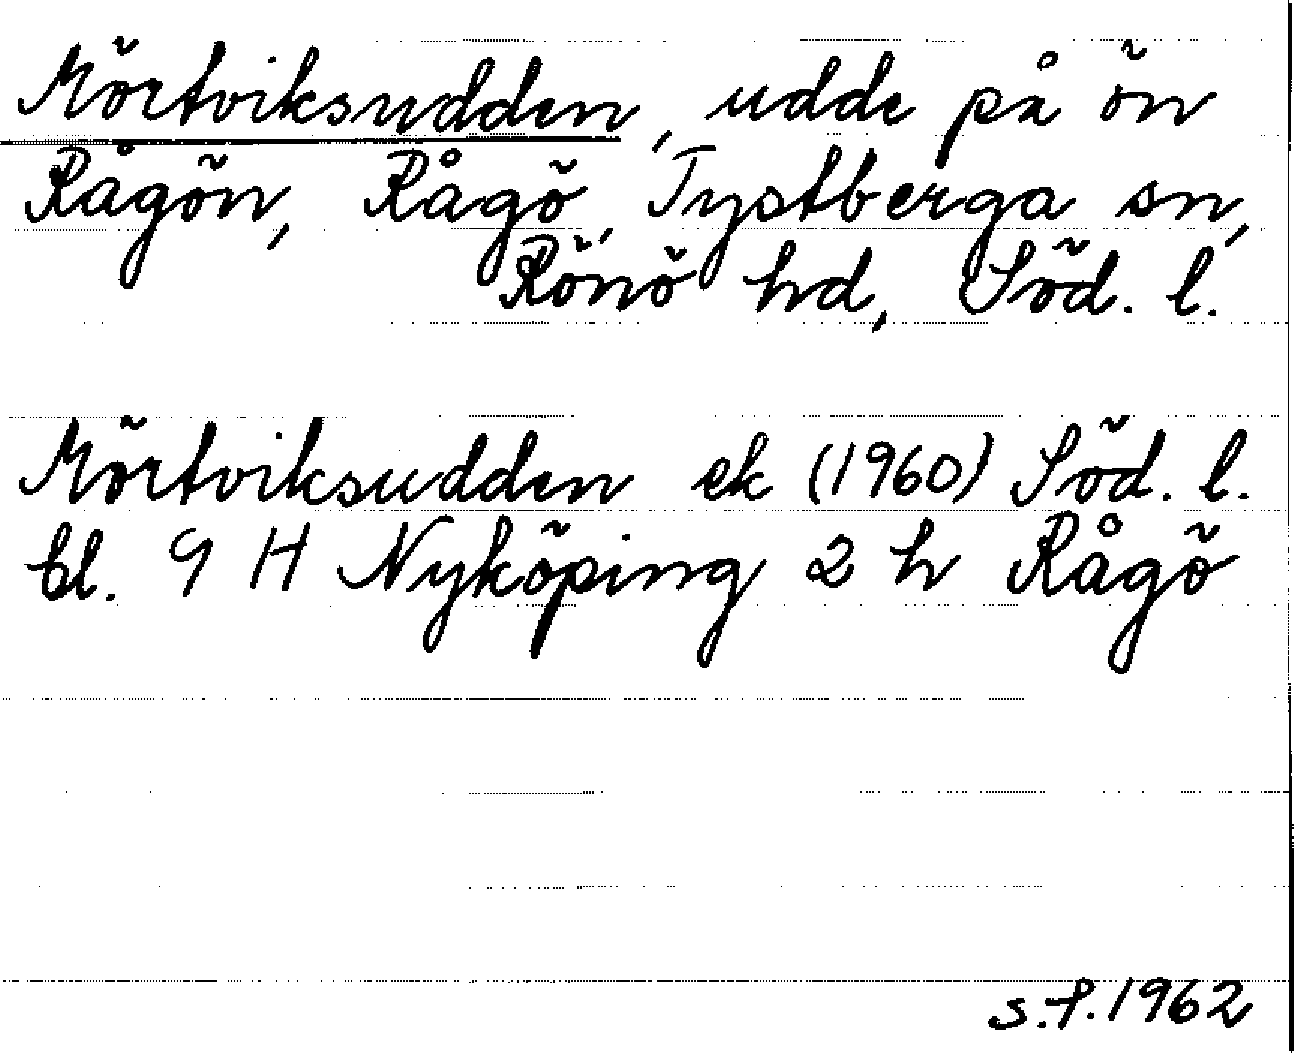 Mörtviksudden, udde på ön
Rågön, Rågö, Tystberga sn,
Rönö hd, Söd. l.
Mörtviksudden ek (1960) Söd. l.
bl. 9 H Nyköping 2 h Rågö
s.f. 1962